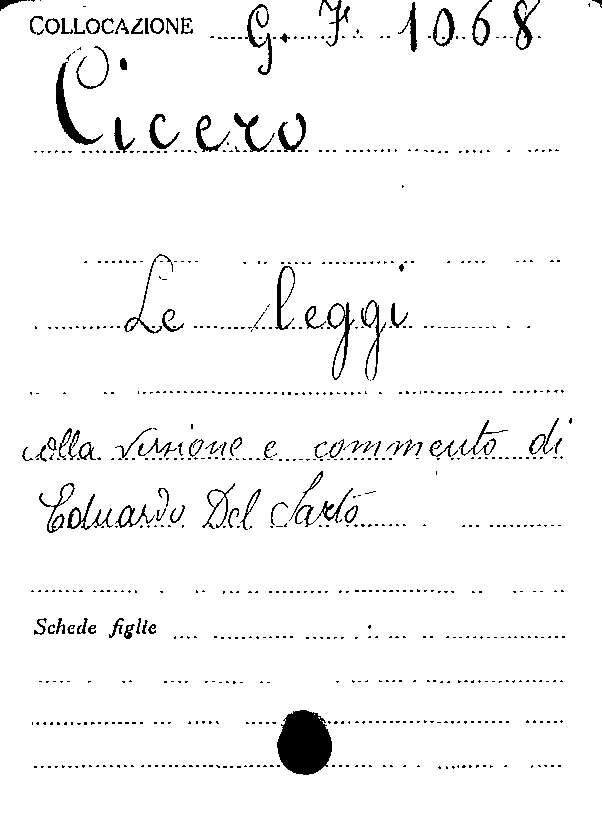 COLLOCAZIONE G. F. 1068
Cicero
Le leggi
colla versione e commento di
Eduardo Del Sarto
Schede figlie